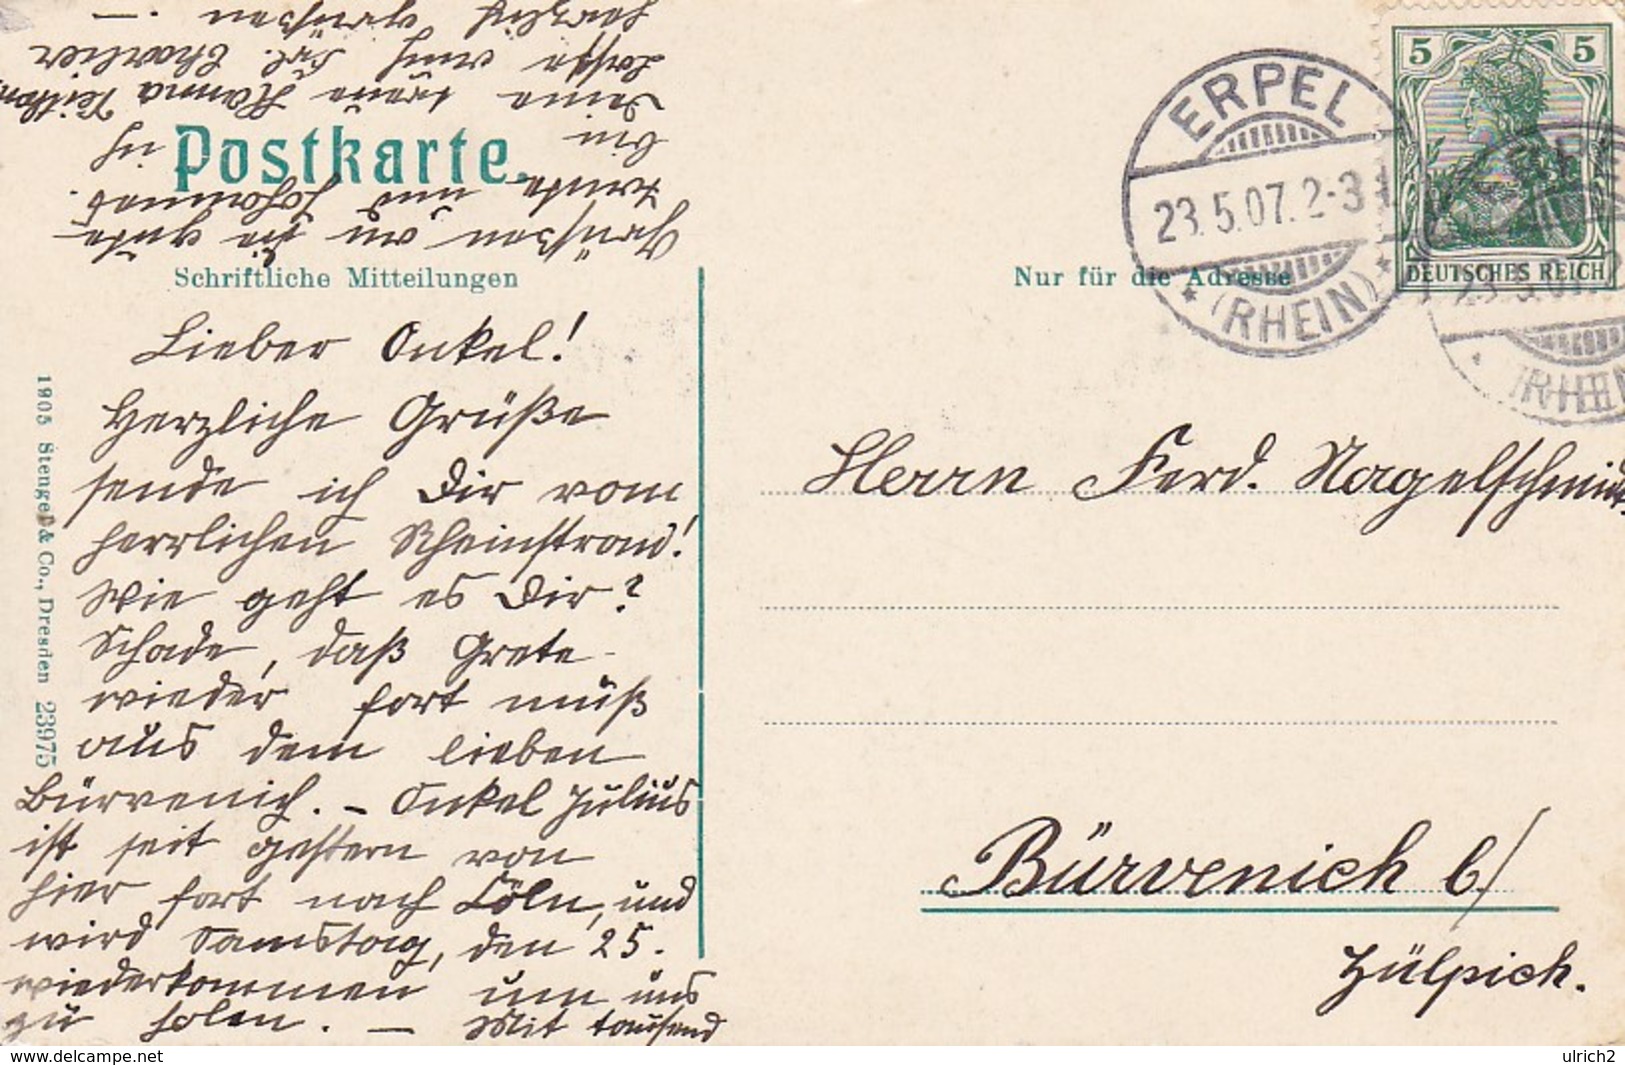 Postkarte.
Schriftliche Mitteilungen
Nur für die Adresse
5 5
DEUTSCHES REICH
ERPEL
23.5.07.2-3
(RHEIN)
1905 Stengel & Co., Dresden 23975
Herrn Ferd. Nagelschmidt
Bürvenich b/
Zülpich.
Lieber Onkel!
Herzliche Grüße
sende ich Dir vom
herrlichen Rheinstrand!
Wie geht es Dir?
Schade, daß Grete
wieder fort muß
aus dem lieben
Bürvenich. – Onkel Julius
ist seit gestern von
hier fort nach Cöln, und
wird Samstag, den 25.
wiederkommen um uns
zu holen. – Mit tausend
Grüßen an die gute
Tante und Johannes.
bin ich
Deine treue Hanna
Lasse auch Frl. Charlier
herzlich grüßen –
delcampe.net
ulrich2